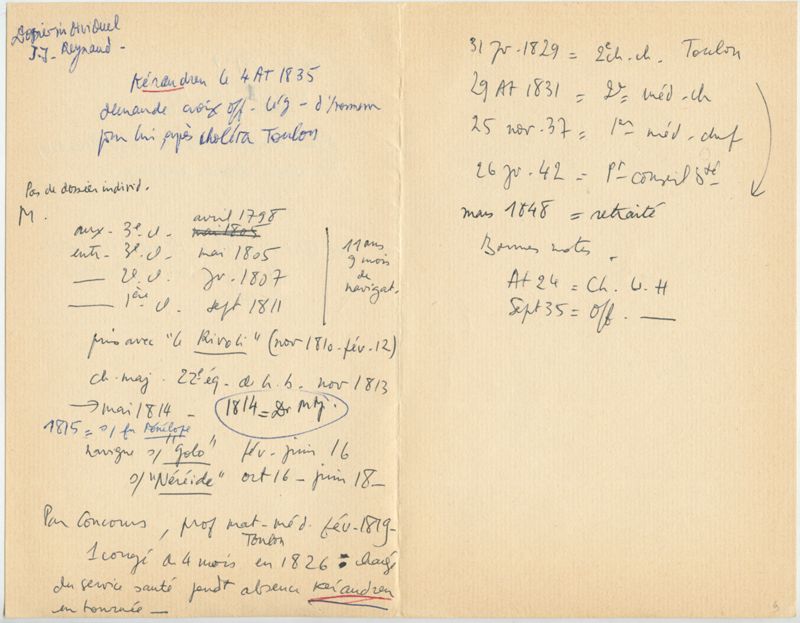 Dossier individuel
J.J. Reynaud -
Kérandren le 4 At 1835
demande croix off. lég - d'honneur
pour lui après choléra Toulon
Pas de dossier individ.
M.
avril 1798
aux - 3e cl. mai 1805
entr - 3e cl. mai 1805
— 2e cl. Jr. 1807
— 1ère cl. sept 1811
11 ans
9 mois
de
navigat.
pris avec "le Rivoli" (nov 1810 - fév. 12)
ch. maj. 22e éq. de h. b. nov 1813
→ mai 1814 - 1814 = Dr Mtp.
1815 = s/ fr Pénélope
navigue s/ "Golo" fév - juin 16
s/ "Néréide" oct 16 - juin 18 -
Par Concours, prof mat-méd. fév. 1819 -
Toulon
1 congé de 4 mois en 1826 : chargé
du service santé pendt absence Kérandren
en tournée —
31 Jr. 1829 = 2e ch. ch. Toulon
29 At 1831 = 2e méd. ch
25 nov. 37 = 1er méd. chef
26 Jr. 42 = Pr conseil sté
mars 1848 = retraité
Bonnes notes.
At 24 = Ch. L. H
Sept 35 = Off. —